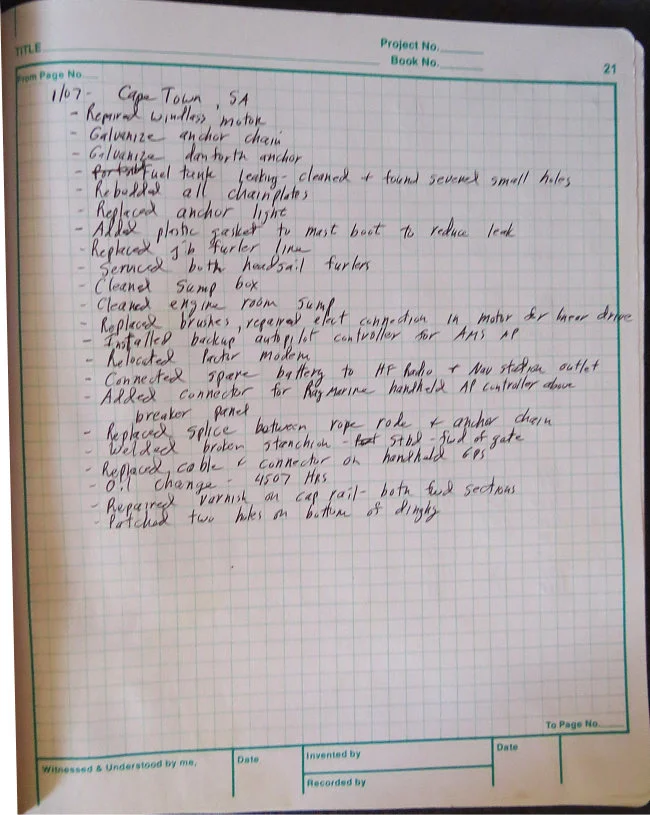 TITLE
Project No.
Book No.
21
From Page No.
1/07- Cape Town, SA
- Repaired windlass motor
- Galvanize anchor chain
- Galvanize danforth anchor
- Fuel tank leaking - cleaned + found several small holes
- Rebedded all chainplates
- Replaced anchor light
- Added plastic gasket to mast boot to reduce leak
- Replaced jib furler line
- Serviced both headsail furlers
- Cleaned sump box
- Cleaned engine room sump
- Replaced brushes, repaired elect connection in motor for linear drive
- Installed backup autopilot controller for AMS AP
- Relocated Pactor modem
- Connected spare battery to HF Radio + Nav station outlet
- Added connector for Raymarine handheld AP controller above
breaker panel
- Replaced splice between rope rode + anchor chain
- Welded broken stanchion - stbd - fwd of gate
- Replaced cable + connector on handheld GPS
- Oil change - 4507 HRS
- Repaired varnish on cap rail - both fwd sections
- Patched two holes on bottom of dinghy
To Page No.
Witnessed & Understood by me,
Date
Invented by
Date
Recorded by